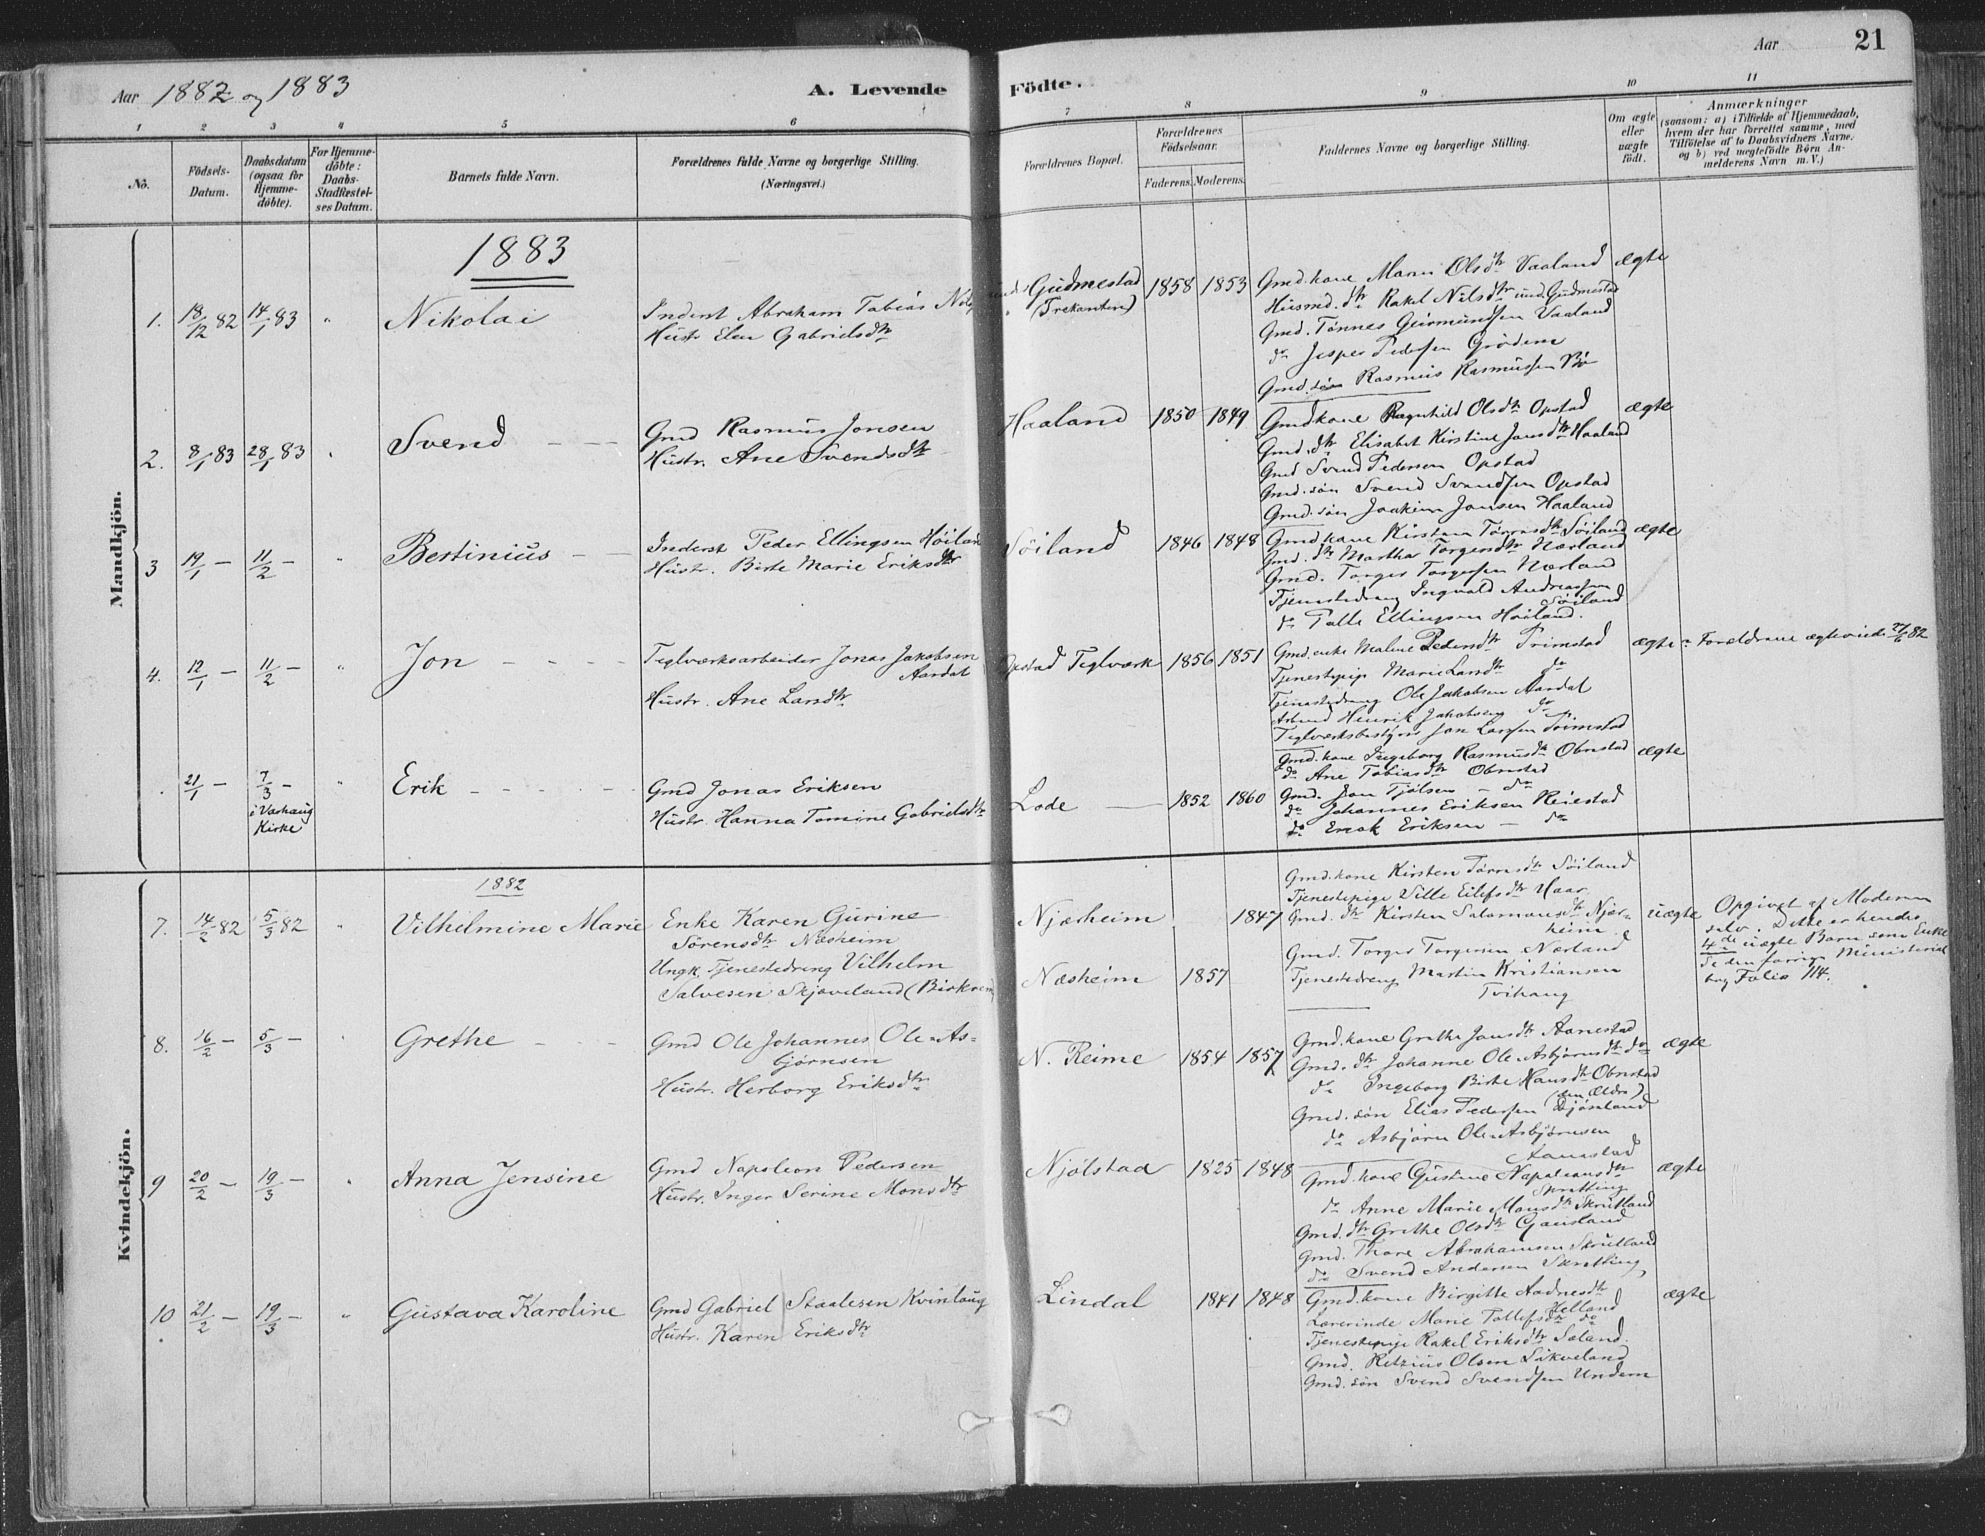 Aar 1882 og 1883
A. Levende Födte.
Aar
21
1 2 3 4 5 6 7 8 9 10 11
No.
Födsels-Datum.
Daabsdatum (ogsaa for Hjemme-döbte).
For Hjemme-döbte: Daabs-Stadfæstel-ses Datum.
Barnets fulde Navn.
Forældrenes fulde Navne og borgerlige Stilling. (Næringsvei.)
Forældrenes Bopæl.
Forældrenes Födselsaar.
Faderens. Moderens.
Faddernes Navne og borgerlig Stilling.
Om ægte eller uægte födt.
Anmærkninger
(saasom: a) i Tilfælde af Hjemmedaab, hvem der har forrettet samme, med Tilföielse af to Daabsvidners Navne. og b) ved uegtefödte Börn An-melderens Navn m. V.)
Mandkjön.
1883
1. 18/12 82 14/1 83 " Nikolai
Inderst Abraham Tobias
Hustr Elen Gabrielsdtr
Gudmestad
(Trekanten)
1858 1853
Gmd.kone Maren Olsdtr Vaaland
Husmd.dtr Rakel Nilsdtr und. Gudmestad
Gmd. Tønnes Geirmundsen Vaaland
do Jesper Pedersen Grødem
Gmd.søn Rasmus Rasmussen Bø
ægte
2. 8/1 83 28/1 83 Svend
Gmd Rasmus Jonsen
Hustr. Ane Svendsdtr
Haaland
1850 1849
Gmdkone Ragnhild Olsdtr Opstad
Gmd.dtr Elisabet Kirstine Jonsdtr Haaland
Gmd Svend Pedersen Opstad
Gmd.søn Svend Svendsen Opstad
Gmd.søn Joakim Jonsen Haaland
ægte
3 19/1 — 11/2 — " Bertinius
Inderst Peder Ellingsen Høiland
Hustr. Birte Marie Eriksdtr
Søiland
1846 1848
Gmd.kone Kirsten Tørresdtr Søiland
Gmd.dtr Martha Torgersdtr Nærland
Gmd. Torger Torgersen Nærland
Tjenestedreng Ingvald Andreassen
Søiland
do Palle Ellingsen Høiland.
ægte
4. 12/1 — 11/2 — " Jon
Teglværksarbeider Jonas Jakobsen
Aardal
Hustr. Ane Larsdtr
Opstad Teglværk
1856 1851
Gmd.enke Malene Pedersdtr Primstad
Tjenestepige Marie Larsdtr do
Tjenestedreng Ole Jakobsen Aardal
Henrik Jakobsen do
Teglværksbestyrer Jon Larsen Primstad
ægte
Forældrene ægteviede 27/6 82
. 21/1 — 7/3 — "
i Varhaug
Kirke
Erik
Gmd Jonas Eriksen
Hustr. Hanna Tomine Gabrielsdtr
Lode
1852 1860
Gmd.kone Ingeborg Rasmusdtr Obrestad
do Ane Tobiasdtr Obrestad
Gmd. Jon Tjølsen — do
do Johannes Eriksen Reiestad
do Enok Eriksen — do
ægte
Kvindekjön.
1882
7. 14/2 82 5/3 82 " Vilhelmine Marie
Enke Karen Gurine
Sørensdtr Næsheim
Ungk. Tjenestedreng Vilhelm
Salvesen Skjæveland (Birkrem)
Njæsheim
Næsheim
1857 1847
Gmd.kone Kirsten Tørresdtr Søiland
Tjenestepige Ville Eilefsdtr Haar
Gmd.dtr Kirsten Salamonsdtr Njær-
heim.
Gmd. Torger Torgersen Nærland
Tjenestedreng Martin Kristiansen
Tvihaug
uægte
Opgivet af Moderen
selv. Dette er hendes
4de uægte Barn som Enke
Se den forrige Ministerial
bog Folio 114.
8. 16/2 — 5/3 — Grethe
Gmd Ole Johannes Ole-As-
bjørnsen
Hustr. Herborg Eriksdtr
N. Reime
1854 1857
Gmd.kone Grethe Jonsdtr Aanestad
Gmd.dtr Johanne Ole-Asbjørnsdtr do
do Ingeborg Birte Hansdtr Obrestad
(den Ældre)
Gmd.søn Elias Pedersen
do Asbjørn Ole-Asbjørnsen
Aanestad
ægte
9 20/2 — 19/3 — Anna Jensine
Gmd Napoleon Pedersen
Hustr. Inger Serine Monsdtr
Njølstad
1825 1848
Gmd.kone Gustine Napoleonsdtr
Skratting
do Anne Marie Monsdtr Skrudland
Gmd.dtr Grethe Olsdtr Gausland
Gmd. Thore Abrahamsen Skrudland
do Svend Andersen Skratting
ægte
10 21/2 — 19/3 — " Gustava Karoline
Gmd Gabriel Staalesen Kvinlaug
Hustr. Karen Eriksdtr
Lindal
1841 1848
Gmd.kone Birgitte Aadnesdtr
Helland
Lærerinde Marie Tollefsdtr do
Tjenestepige Rakel Eriksdtr Sæland.
Gmd. Retzius Olsen Sikveland
Gmd.søn Svend Svendsen Undem
ægte